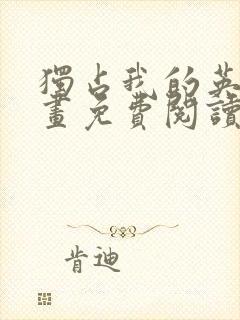 獨占我的英
畫免費閱讀
肯迪